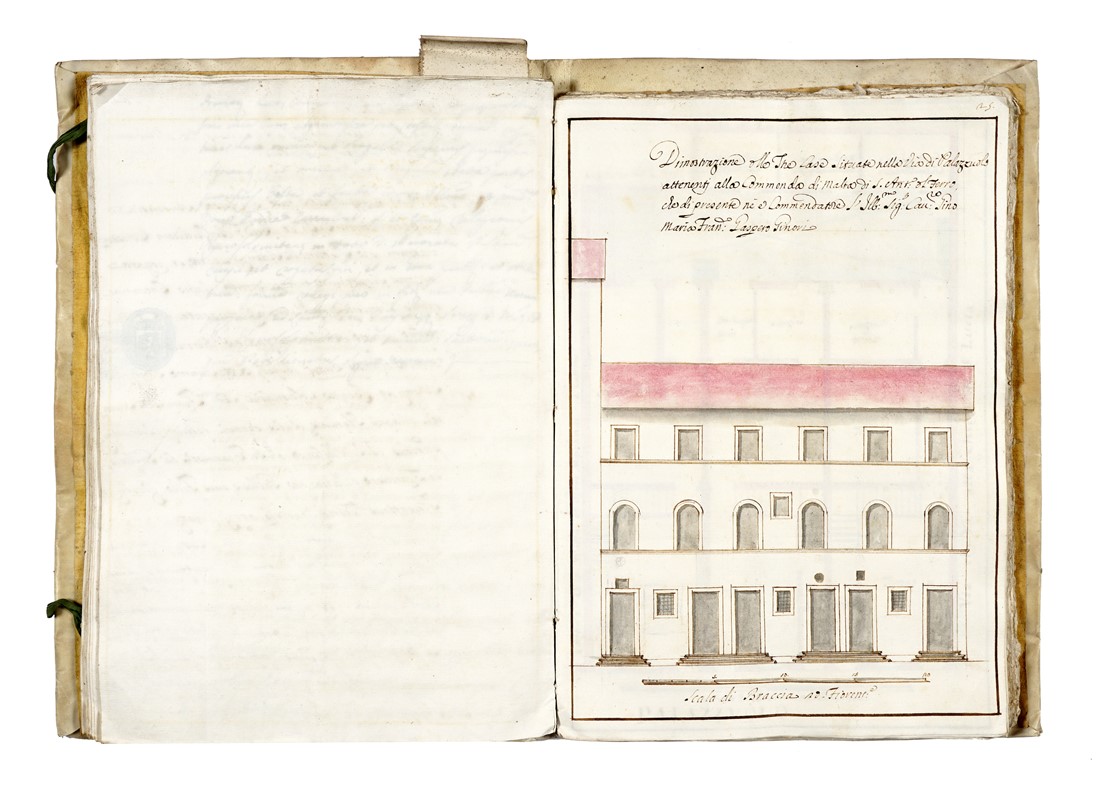 Dimostrazione delle Tre Case Situate nella Via di Palazzuolo
attenenti alla Commenda di Malta di S. Ant.º del Ferro,
che di presente ne è Commendatore l'Ill.mo Sig.re Cav.re Pino
Maria Fran.: Gaspero Ginori
5 10 15 20
Scala di Braccia 20 Fiorent.e